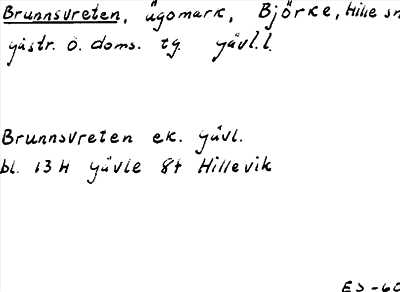 Brunnsvreten, ägomark, Björke, Hille sn
gästr. ö. doms. tg. gävl.l.
Brunnsvreten ek. gävl.
bl. 13 H gävle 8f Hillevik
ES-60